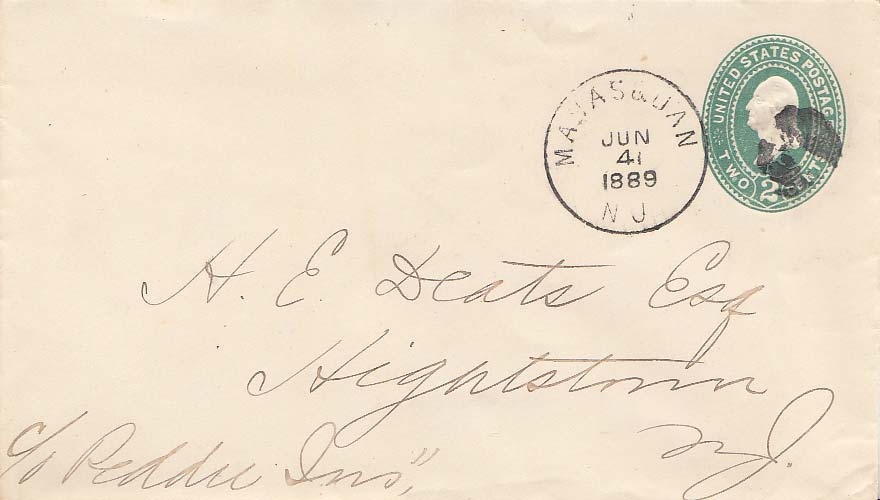 MANASQUAN
JUN
41
1889
N J
UNITED STATES POSTAGE
TWO 2 CENTS
H. E. Deats Esq
Hightstown
N J.
c/o Peddie Ins",